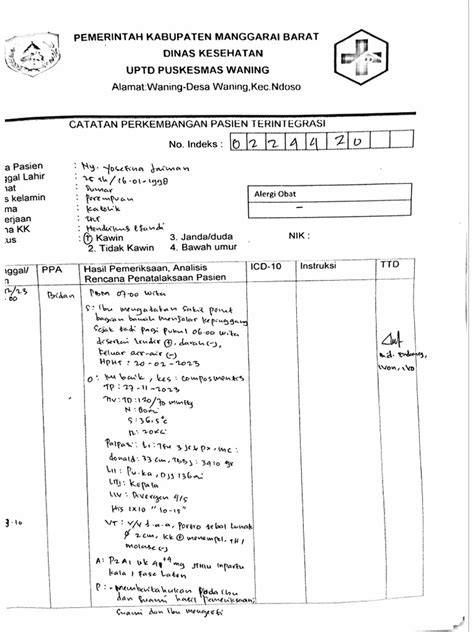 PEMERINTAH KABUPATEN MANGGARAI BARAT
DINAS KESEHATAN
UPTD PUSKESMAS WANING
Alamat:Waning-Desa Waning,Kec.Ndoso
CATATAN PERKEMBANGAN PASIEN TERINTEGRASI
No. Indeks : 0 2 2 4 4 2 0
a Pasien : Ny. Yosefina Jaiman
ggal Lahir : 25 th / 16-01-1998
nat : Dumar
s kelamin : Perempuan
ma : Katolik
erjaan : IRT
na KK : Hendrikus Efandi
tus : 1 Kawin 3. Janda/duda
2. Tidak Kawin 4. Bawah umur
Alergi Obat
–
NIK :
nggal/ PPA Hasil Pemeriksaan, Analisis ICD-10 Instruksi TTD
n Rencana Penatalaksaan Pasien
12/23 Bidan Pkm 07.00 wita
.00
S : Ibu mengatakan sakit perut
bagian bawah menjalar kepinggang
sejak tadi pagi pukul 06.00 wita
disertai lendir (+), darah (-),
keluar air-air (-)
HPHT : 20-02-2023
O : KU baik, kes : composmentis
TP : 27-11-2023
TTV : TD : 120/70 mmHg
N : 80x/
S : 36,5°c
R : 20x/
Palpasi : LI : TFU 3 jr ↓ px, mc :
donald : 33 cm, TBBJ : 3410 gr
LII : Pu-ka, DJJ 136x/
LIII : Kepala
LIV : Divergen 4/5
His 1x10 "10-15"
VT : V/V t.a.a, Portio tebal lunak
Ø 2cm, KK (+) menempel, TH I
molase (-)
A : P2A1 UK mg JTHIU inpartu
kala I fase laten
P : - memberitahukan pada ibu
dan suami hasil pemeriksaan;
suami dan ibu mengerti